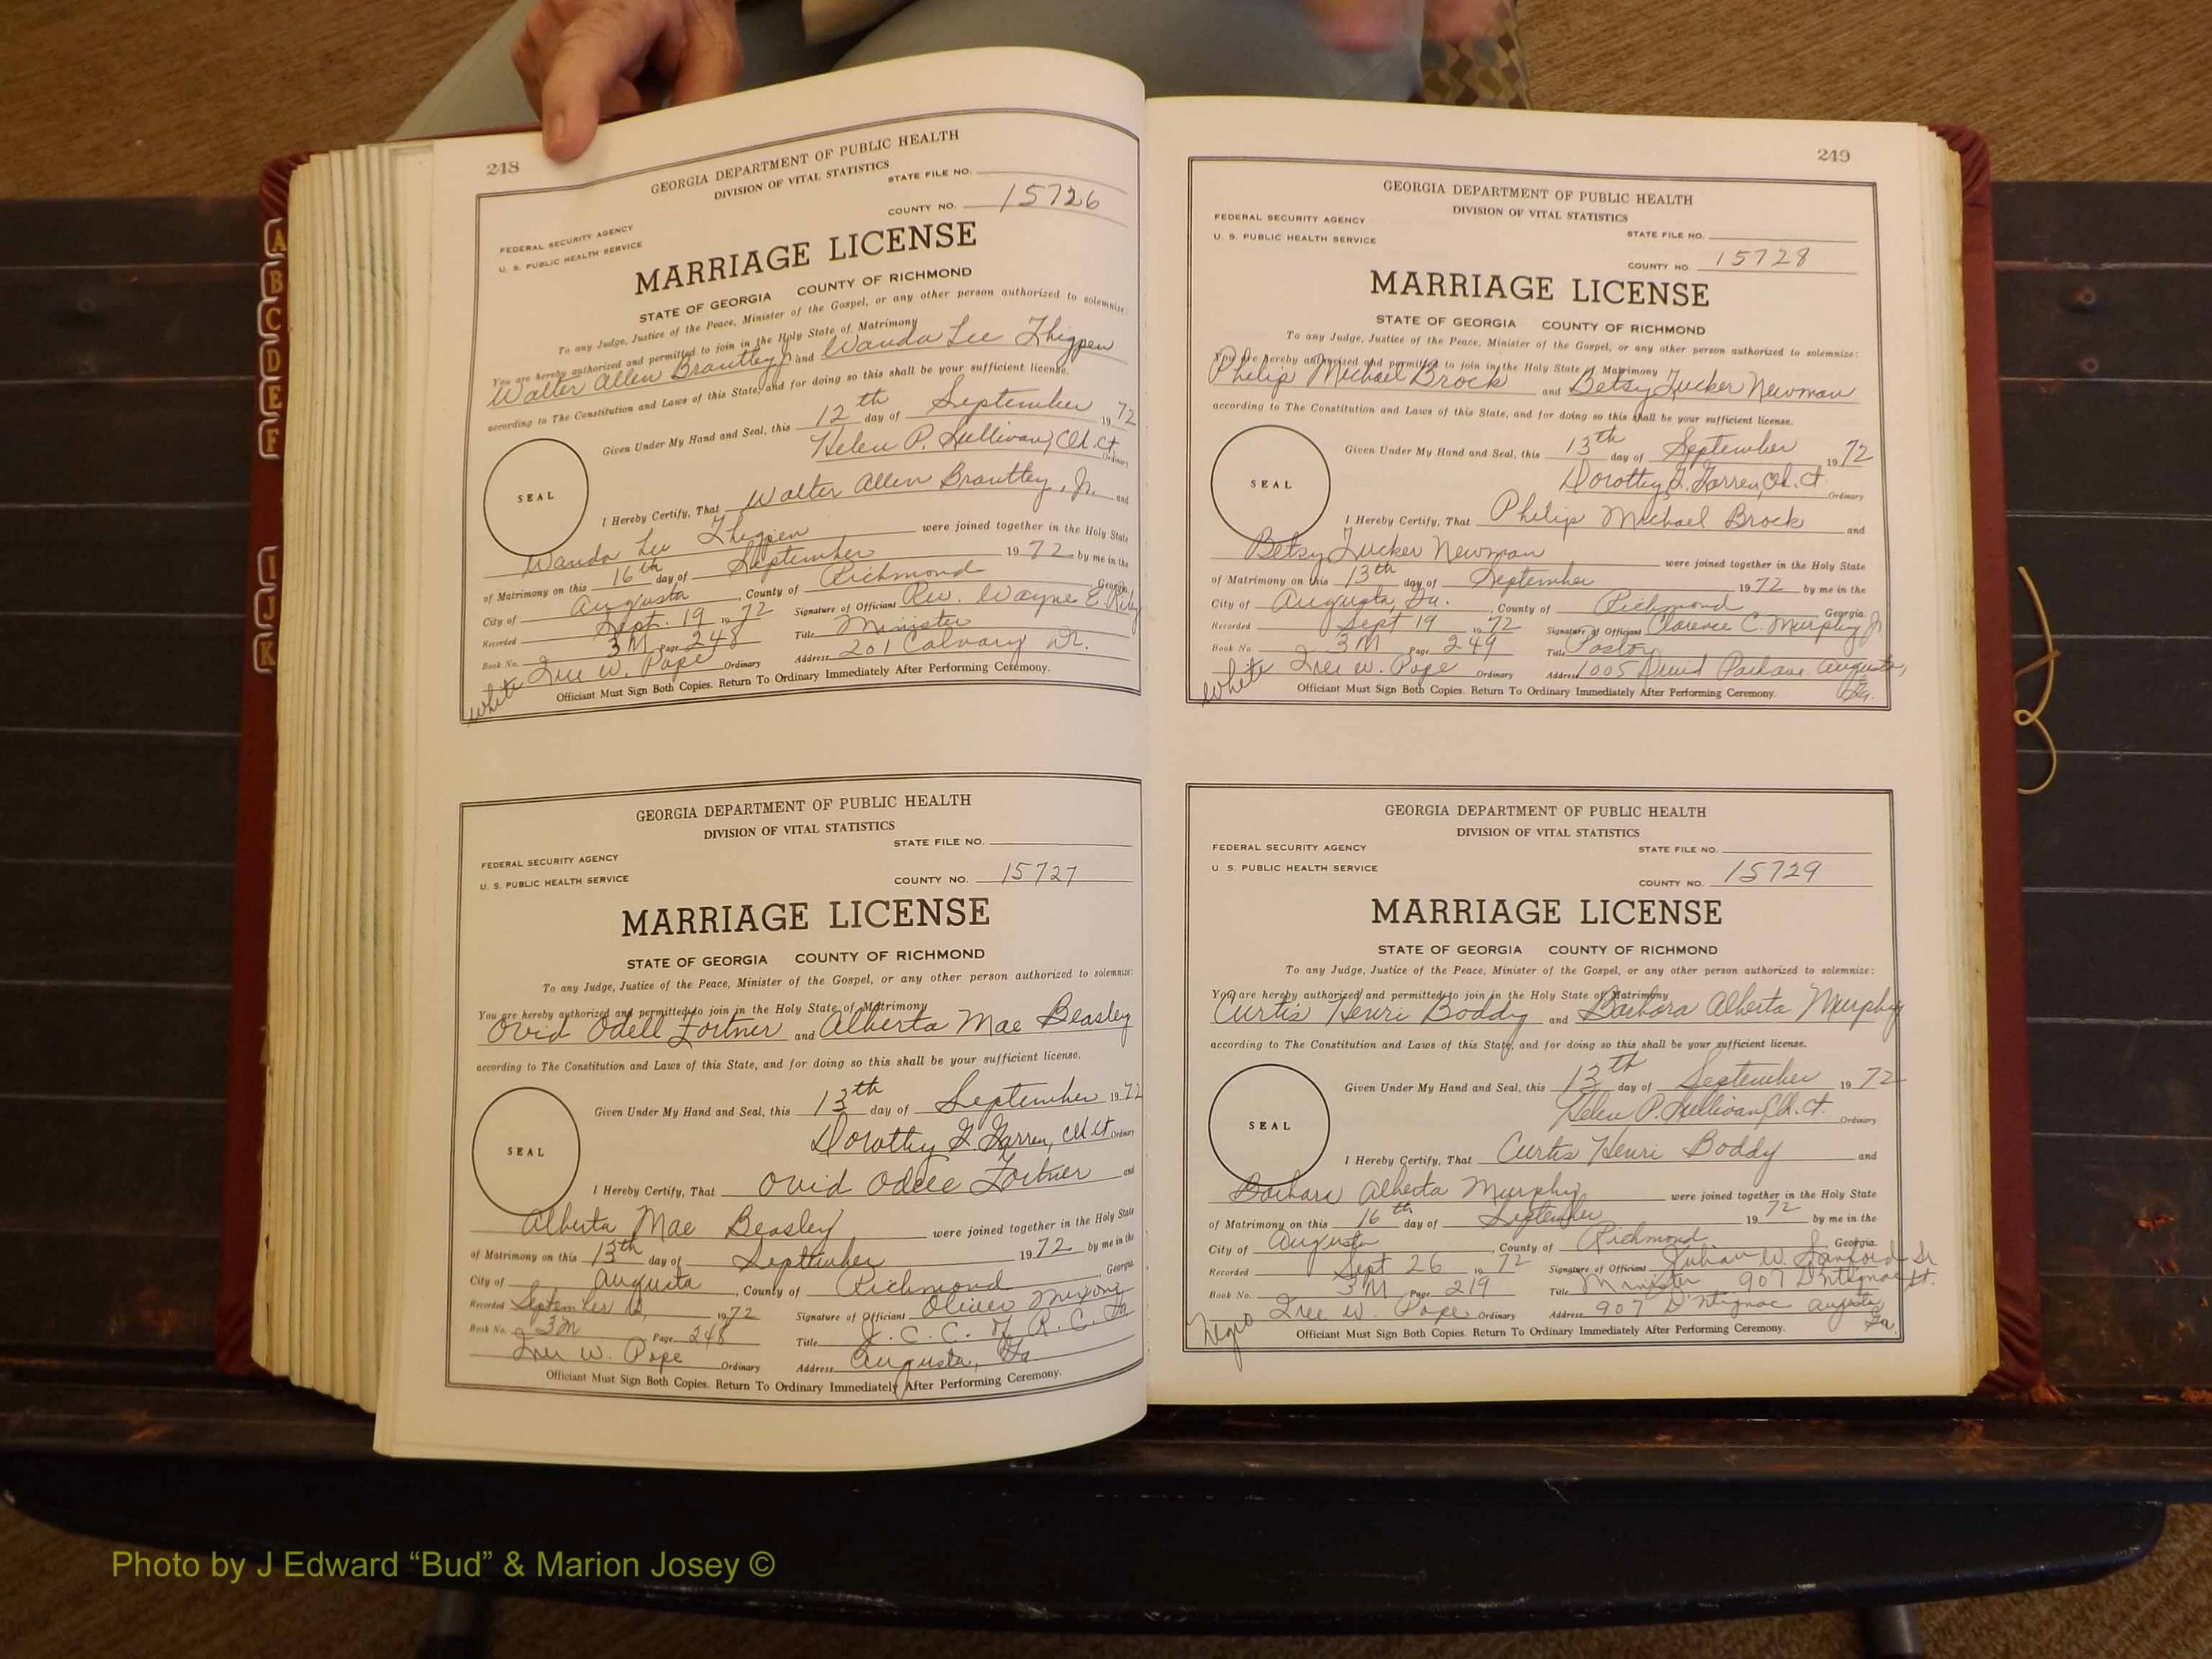 A
B
C
D
E
F
I
J
K
248
GEORGIA DEPARTMENT OF PUBLIC HEALTH
DIVISION OF VITAL STATISTICS
STATE FILE NO.
COUNTY NO. 15726
FEDERAL SECURITY AGENCY
U. S. PUBLIC HEALTH SERVICE
MARRIAGE LICENSE
STATE OF GEORGIA COUNTY OF RICHMOND
To any Judge, Justice of the Peace, Minister of the Gospel, or any other person authorized to solemnize:
You are hereby authorized and permitted to join in the Holy State of Matrimony
Walter Allen Brantley Jr and Wanda Lee Thigpen
according to The Constitution and Laws of this State, and for doing so this shall be your sufficient license.
Given Under My Hand and Seal, this 12th day of September 1972
Helen P. Sullivan, Ch. Ct. Ordinary
SEAL
I Hereby Certify, That Walter Allen Brantley, Jr. and
Wanda Lee Thigpen were joined together in the Holy State
of Matrimony on this 16th day of September 1972 by me in the
City of Augusta, County of Richmond, Georgia.
Recorded Sept. 19 1972 Signature of Officiant Rev. Wayne E.
Book No. 3M Page 248 Title Minister
W. Pope Ordinary Address 201 Calvary Dr.
white
Officiant Must Sign Both Copies. Return To Ordinary Immediately After Performing Ceremony.
GEORGIA DEPARTMENT OF PUBLIC HEALTH
DIVISION OF VITAL STATISTICS
STATE FILE NO.
FEDERAL SECURITY AGENCY
U. S. PUBLIC HEALTH SERVICE
COUNTY NO. 15727
MARRIAGE LICENSE
STATE OF GEORGIA COUNTY OF RICHMOND
To any Judge, Justice of the Peace, Minister of the Gospel, or any other person authorized to solemnize:
You are hereby authorized and permitted to join in the Holy State of Matrimony
Ovid Odell Fortner and Alberta Mae Beasley
according to The Constitution and Laws of this State, and for doing so this shall be your sufficient license.
Given Under My Hand and Seal, this 13th day of September 1972
Dorothy Ch. Ct. Ordinary
SEAL
I Hereby Certify, That Ovid Odell Fortner and
Alberta Mae Beasley were joined together in the Holy State
of Matrimony on this 13th day of September 1972 by me in the
City of Augusta, County of Richmond, Georgia
Recorded September 1972 Signature of Officiant Oliver Mixon
Book No. 3M Page 248 Title J. C. C. of R. C. Ga
W. Pope Ordinary Address Augusta, Ga
Officiant Must Sign Both Copies. Return To Ordinary Immediately After Performing Ceremony.
249
GEORGIA DEPARTMENT OF PUBLIC HEALTH
DIVISION OF VITAL STATISTICS
FEDERAL SECURITY AGENCY
U. S. PUBLIC HEALTH SERVICE
STATE FILE NO.
COUNTY NO. 15728
MARRIAGE LICENSE
STATE OF GEORGIA COUNTY OF RICHMOND
To any Judge, Justice of the Peace, Minister of the Gospel, or any other person authorized to solemnize:
You are hereby authorized and permitted to join in the Holy State of Matrimony
Philip Michael Brock and Betsy Tucker Newman
according to The Constitution and Laws of this State, and for doing so this shall be your sufficient license.
Given Under My Hand and Seal, this 13th day of September 1972
Dorothy Ch. Ct. Ordinary
SEAL
I Hereby Certify, That Philip Michael Brock and
Betsy Tucker Newman were joined together in the Holy State
of Matrimony on this 13th day of September 1972 by me in the
City of Augusta, Ga., County of Richmond Georgia.
Recorded Sept 19 1972 Signature of Officiant Clarence C. Murphy Jr.
Book No. 3M Page 249 Title Pastor
W. Pope Ordinary Address 1005 Druid Park Ave Augusta, Ga.
white
Officiant Must Sign Both Copies. Return To Ordinary Immediately After Performing Ceremony.
GEORGIA DEPARTMENT OF PUBLIC HEALTH
DIVISION OF VITAL STATISTICS
FEDERAL SECURITY AGENCY
U. S. PUBLIC HEALTH SERVICE
STATE FILE NO.
COUNTY NO. 15729
MARRIAGE LICENSE
STATE OF GEORGIA COUNTY OF RICHMOND
To any Judge, Justice of the Peace, Minister of the Gospel, or any other person authorized to solemnize:
You are hereby authorized and permitted to join in the Holy State of Matrimony
Curtis Henri Boddy and Barbara Alberta Murphy
according to The Constitution and Laws of this State, and for doing so this shall be your sufficient license.
Given Under My Hand and Seal, this 13th day of September 1972
Helen P. Sullivan, Ch. Ct. Ordinary
SEAL
I Hereby Certify, That Curtis Henri Boddy and
Barbara Alberta Murphy were joined together in the Holy State
of Matrimony on this 16th day of September 1972 by me in the
City of Augusta, County of Richmond Georgia.
Recorded Sept 26 1972 Signature of Officiant Julian W. Sanford Sr
Book No. 3M Page 219 Title Minister 907 D'ntignac St.
W. Pope Ordinary Address 907 D'ntignac Augusta Ga.
Negro
Officiant Must Sign Both Copies. Return To Ordinary Immediately After Performing Ceremony.
Photo by J Edward “Bud” & Marion Josey ©